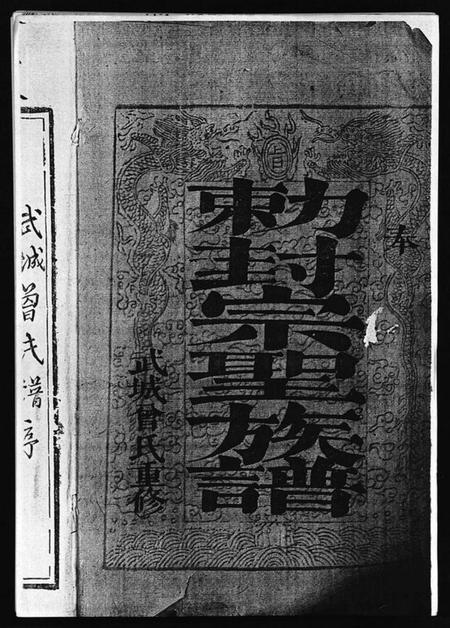 奉
旨
勅封宗聖族譜
武城曾氏重修
武城曾氏譜序